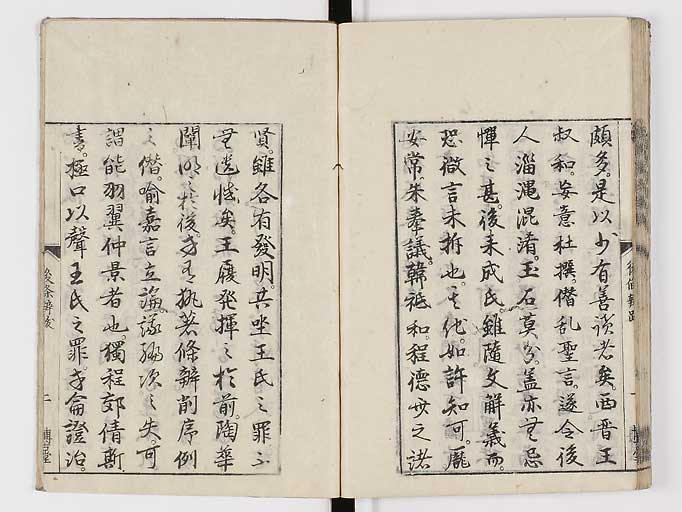 頗多。是以少有善談者矣。西晋王
叔和。妄意杜撰。僭乱聖言。遂令後
人淄澠混淆。玉石莫分。盖亦無忌
憚之甚。後来成氏。雖随文解義。而
恐微言未析也。其他。如許知可。龐
安常。朱奉議。韓祗和。程德
之諸
賢。雖各有發明。共坐王氏之罪而
無遺憾矣。王履発揮之於前。陶華
闡
之於後。方有執著條辨削序例
之僭。喻嘉言立論。
編次之失。可
謂能羽翼仲景者也。獨程郊倩斯
書。極口以聲王氏之罪。
論證治。
後条辨跋
二